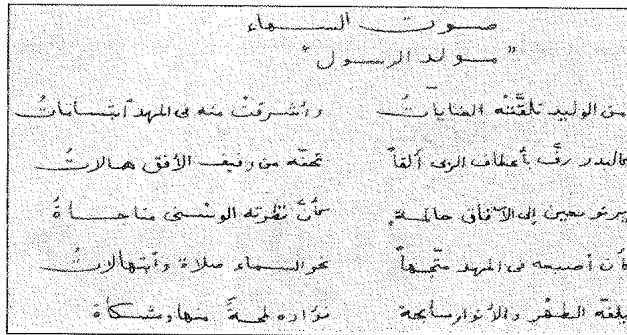 صوت السماء
"مولد الرسول"
من الوليد تلقّته العنايات وأشرقت منه فى المهد ابتسامات
كالبدر رفّ بأعطاف الربى ألقاً تحفّه من رفيف الأفق هالات
يرنو بعين إلى الآفاق حالمة كأنّ نظرته الوسنى مناجاة
كأن أصبعه فى المهد متّجهاً نحو السماء صلاة وابتهالات
يلفّه الطهر والأنوار سابحة فؤاده لمحة منها ومشكاة